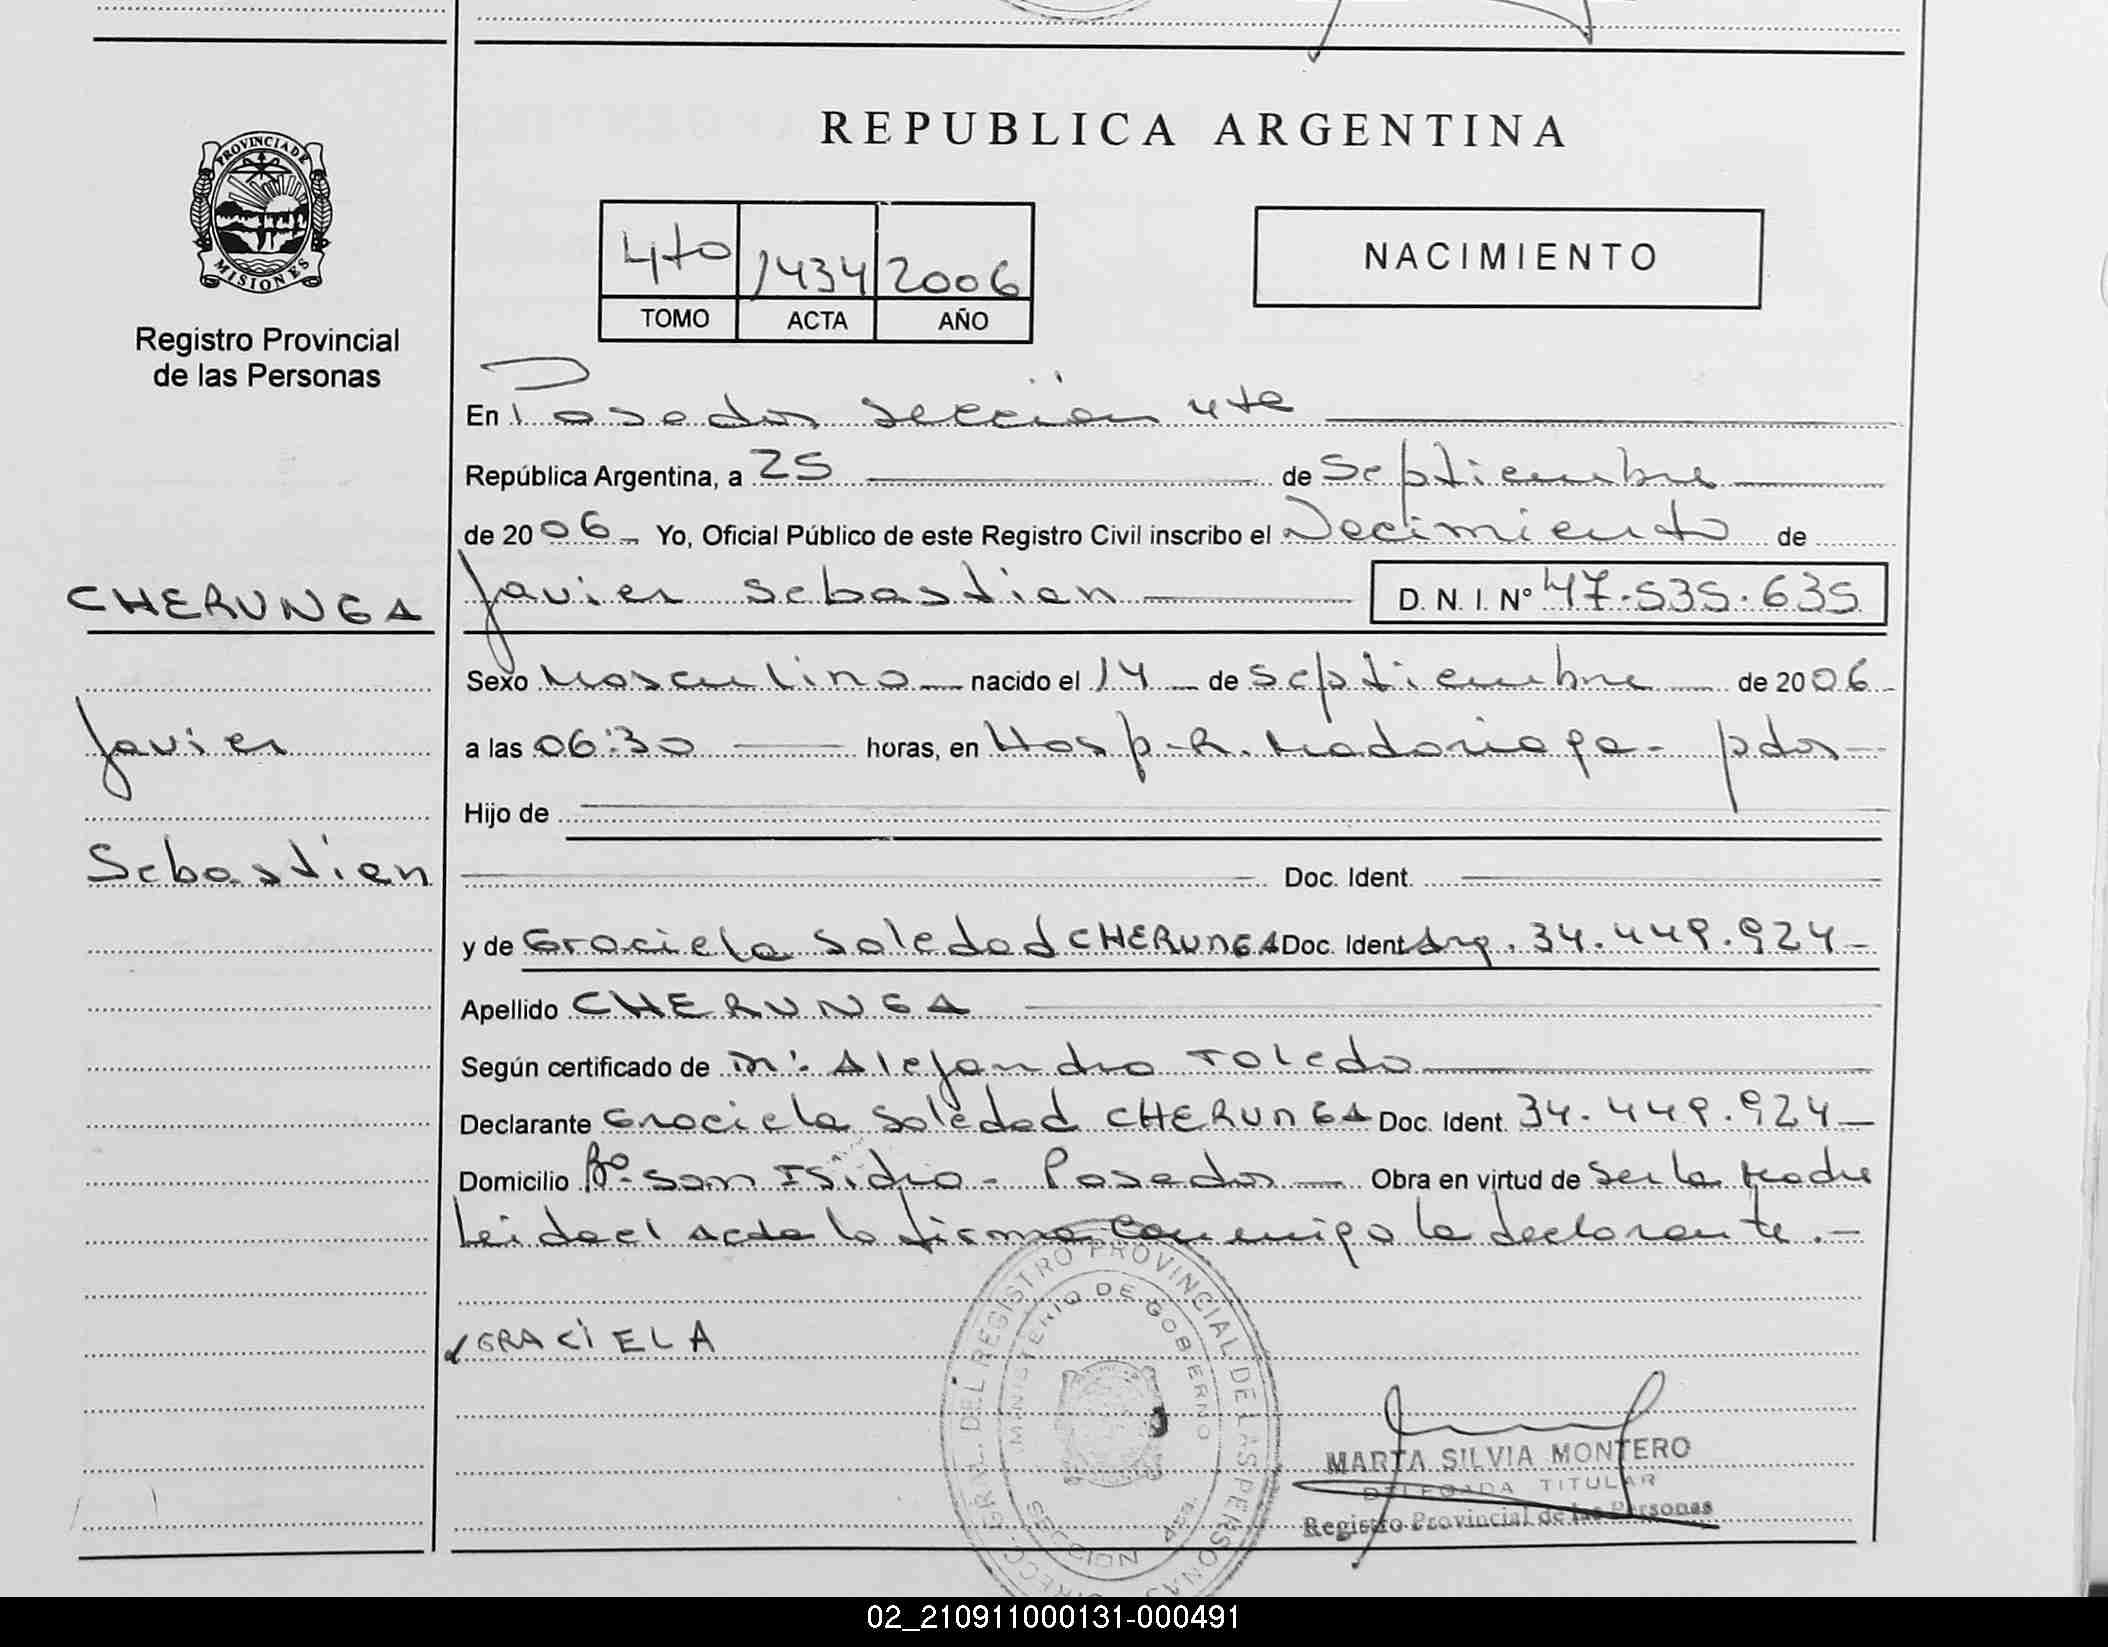 PROVINCIA DE
MISIONES
Registro Provincial
de las Personas
CHERUNGA
Javier
Sebastian
REPUBLICA ARGENTINA
4to 1434 2006
TOMO ACTA AÑO
NACIMIENTO
En Posadas sección 4ta
República Argentina, a 25 de Septiembre
de 2006 Yo, Oficial Público de este Registro Civil inscribo el Nacimiento de
Javier Sebastian D. N. I. Nº 47.535.635
Sexo Masculino nacido el 14 de Septiembre de 2006
a las 06:30 horas, en Hosp. R. Madariaga - pdas
Hijo de
Doc. Ident.
y de Graciela Soledad CHERUNGA Doc. Ident Arg. 34.449.924
Apellido CHERUNGA
Según certificado de Mº Alejandro Toledo
Declarante Graciela Soledad CHERUNGA Doc. Ident. 34.449.924
Domicilio Bº San Isidro - Posadas Obra en virtud de ser la Madre
Leida el acta la firma conmigo la declarante.-
GRACIELA
DIRECC. GRAL. DEL REGISTRO PROVINCIAL DE LAS PERSONAS
MINISTERIO DE GOBIERNO
SECCION
MARTA SILVIA MONTERO
DELEGADA TITULAR
Registro Provincial de las Personas
02_210911000131-000491